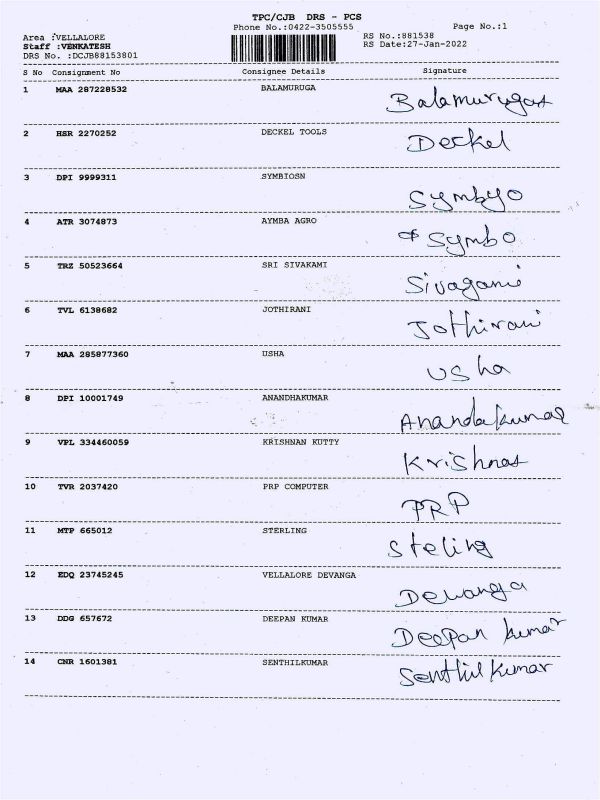 TPC/CJB DRS - PCS
Phone No.:0422-3505555 Page No.:1
Area :VELLALORE RS No.:881538
Staff :VENKATESH RS Date:27-Jan-2022
DRS No. :DCJB88153801
S No Consignment No Consignee Details Signature
1 MAA 287228532 BALAMURUGA Balamurugas
2 HSR 2270252 DECKEL TOOLS Deckel
3 DPI 9999311 SYMBIOSN Symbyo
4 ATR 3074873 AYMBA AGRO Symbo
5 TRZ 50523664 SRI SIVAKAMI Sivagami
6 TVL 6138682 JOTHIRANI Jothirani
7 MAA 285877360 USHA Usha
8 DPI 10001749 ANANDHAKUMAR Anandakumar
9 VPL 334460059 KRISHNAN KUTTY Krishnas
10 TVR 2037420 PRP COMPUTER PRP
11 MTP 665012 STERLING Steling
12 EDQ 23745245 VELLALORE DEVANGA Devanga
13 DDG 657672 DEEPAN KUMAR Deepan kumar
14 CNR 1601381 SENTHILKUMAR Senthil kumar